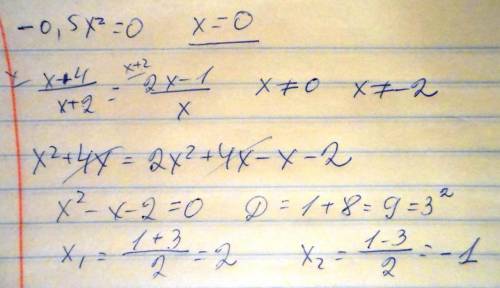 -0,5x²=0 x=0
x\ (x+4)/(x+2) = x+2\ (2x-1)/x x≠0 x≠-2
x²+4x = 2x²+4x-x-2
x²-x-2=0 D=1+8=9=3²
x₁=(1+3)/2=2 x₂=(1-3)/2=-1